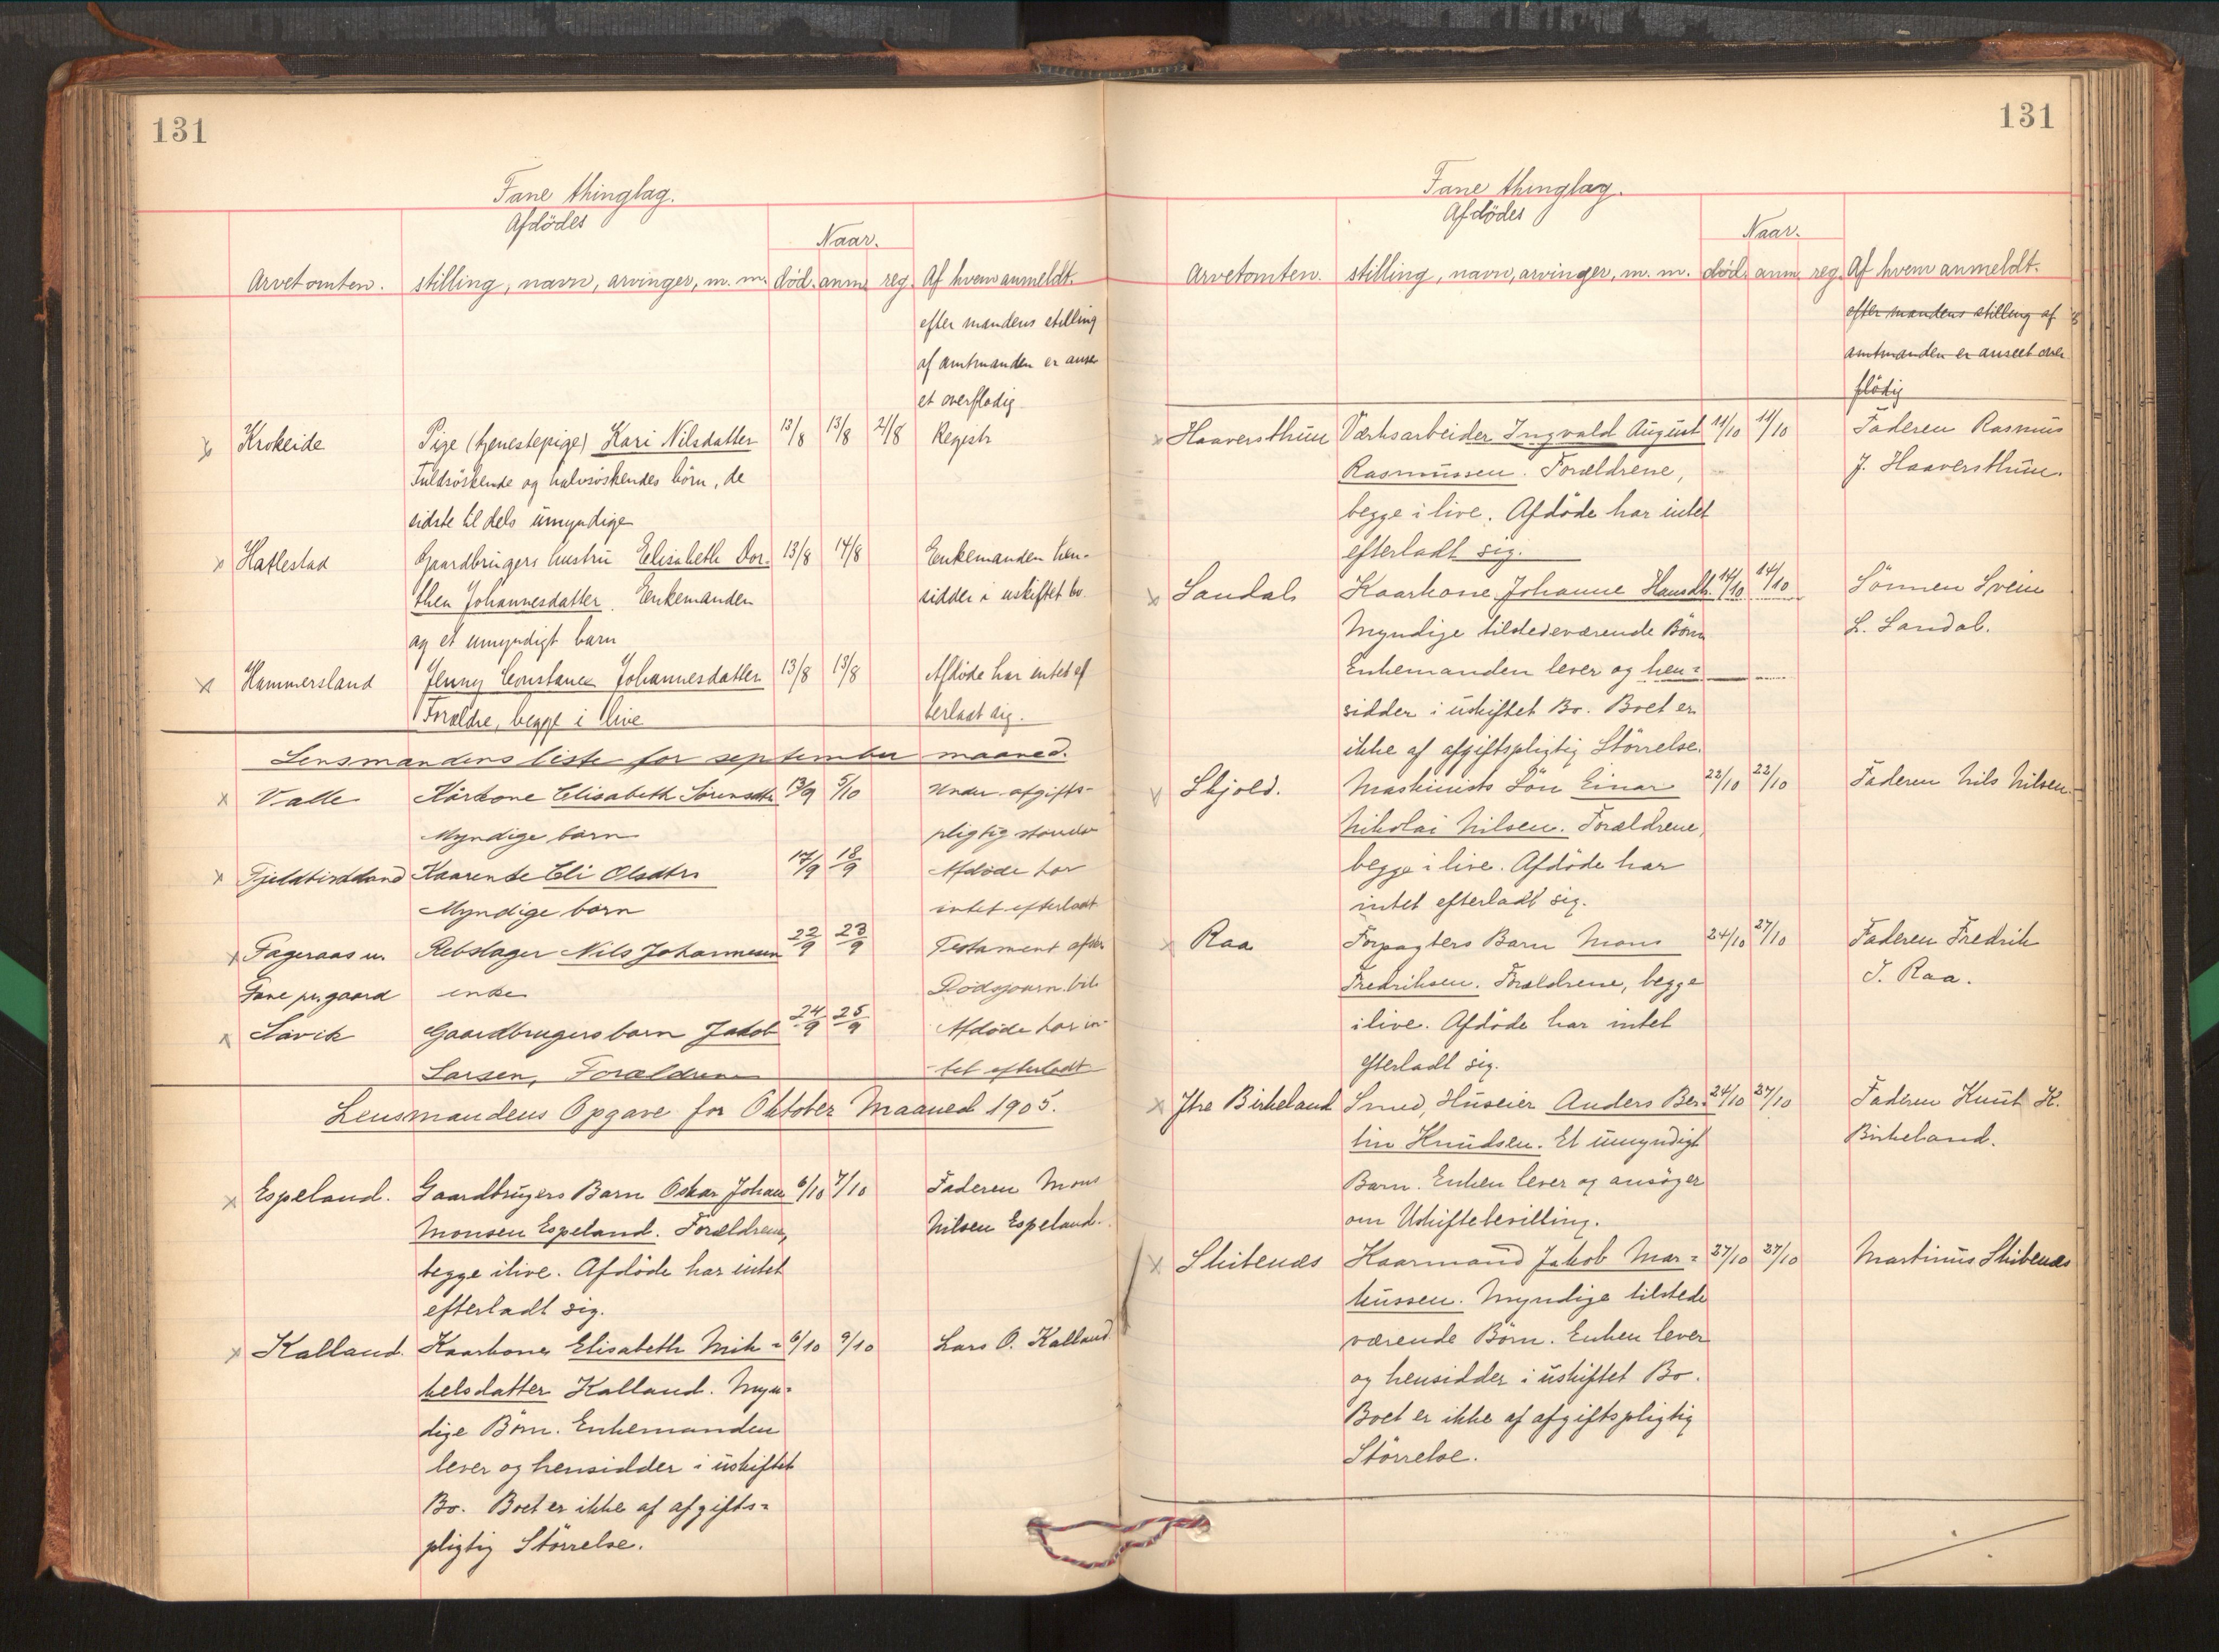 131
Fane thinglag.
Afdödes
Naar.
Arvetomten. stilling, navn, arvinger, m. m. död. anm. reg. Af hvem anmeldt.
efter mandens stilling
af amtmanden er anse
et overflödig
Krokeide Pige (tjenestepige) Kari Nilsdatter 13/8 13/8 21/8 Registr
Fuldsöskende og halvsöskendes börn, de
sidste til dels umyndige
Hatlestad Gaardbrugers hustru Elisabeth Dor- 13/8 14/8 Enkemanden hen-
thea Johannesdatter. Enkemanden sidder i uskiftet bo
og et umyndigt barn
Hammersland Jenny Constance Johannesdatter 13/8 13/8 Afdöde har intet ef
Forældre, begge i live terladt sig.
Lensmandens liste for september maaned.
Valle Kårkone Elisabeth Sörensdtr 13/9 5/10 Under afgifts-
Myndige barn pligtig
Kaarenke Eli Olsdtr 17/9 18/9 Afdöde har
Myndige börn intet efterladt
Fageraas u. Rebslager Nils Johannesen 22/9 23/9 Testament
Fane pr.gaard enke Dödsjourn. bil.
Lavik Gaardbrugers barn Jakob 24/9 25/9 Afdöde har in-
Larsen, Forældrene tet efterladt
Lensmandens Opgave for Oktober Maaned 1905.
Espeland. Gaardbrugers Barn Oskar Johan 6/10 7/10 Faderen Mons
Monsen Espeland. Forældrene, Nilsen Espeland.
begge ilive. Afdöde har intet
efterladt sig.
Kalland. Kaarkone Elisabeth Mik= 6/10 9/10 Lars O. Kalland
kelsdatter Kalland. Myn=
dige Börn. Enkemanden
lever og hensidder i uskiftet
Bo. Boet er ikke af afgifts=
pligtig Störrelse.
131
Fane thinglag.
Afdödes
Naar.
Arvetomten. stilling, navn, arvinger, m. m. död. anm. reg. Af hvem anmeldt.
efter mandens stilling af
amtmanden er anseet over
flödig
Haaversthun Værksarbeider Ingvald August 11/10 11/10 Faderen Rasmus
Rasmussen. Forældrene, J. Haaversthun.
begge i live. Afdöde har intet
efterladt sig.
Sandal Kaarkone Johanne Hansdtr. 14/10 14/10 Sönnen Svein
Myndige tilstedeværende Börn L. Sandal.
Enkemanden lever og hen=
sidder i uskiftet Bo. Boet er
ikke af afgiftspligtig Störrelse.
Skjold. Maskinists Sön Einar 22/10 22/10 Faderen Nils Nilsen.
Nikolai Nilsen. Forældrene,
begge i live. Afdöde har
intet efterladt sig.
Raa Forpagters Barn Mons 24/10 27/10 Faderen Fredrik
Fredriksen. Forældrene, begge J. Raa.
ilive. Afdöde har intet
efterladt sig.
Ytre Birkeland Smed, Huseier Anders Ber- 24/10 27/10 Faderen Knut K.
tin Knudsen. Et umyndigt Birkeland.
Barn. Enken lever og ansöger
om Uskiftebevilling.
Skibenæs Kaarmand Jakob Mar= 27/10 27/10 Martinus Skibenæs
kussen. Myndige tilstede
værende Börn. Enken lever
og hensidder i uskiftet Bo.
Boet er ikke af afgiftspligtig
Störrelse.